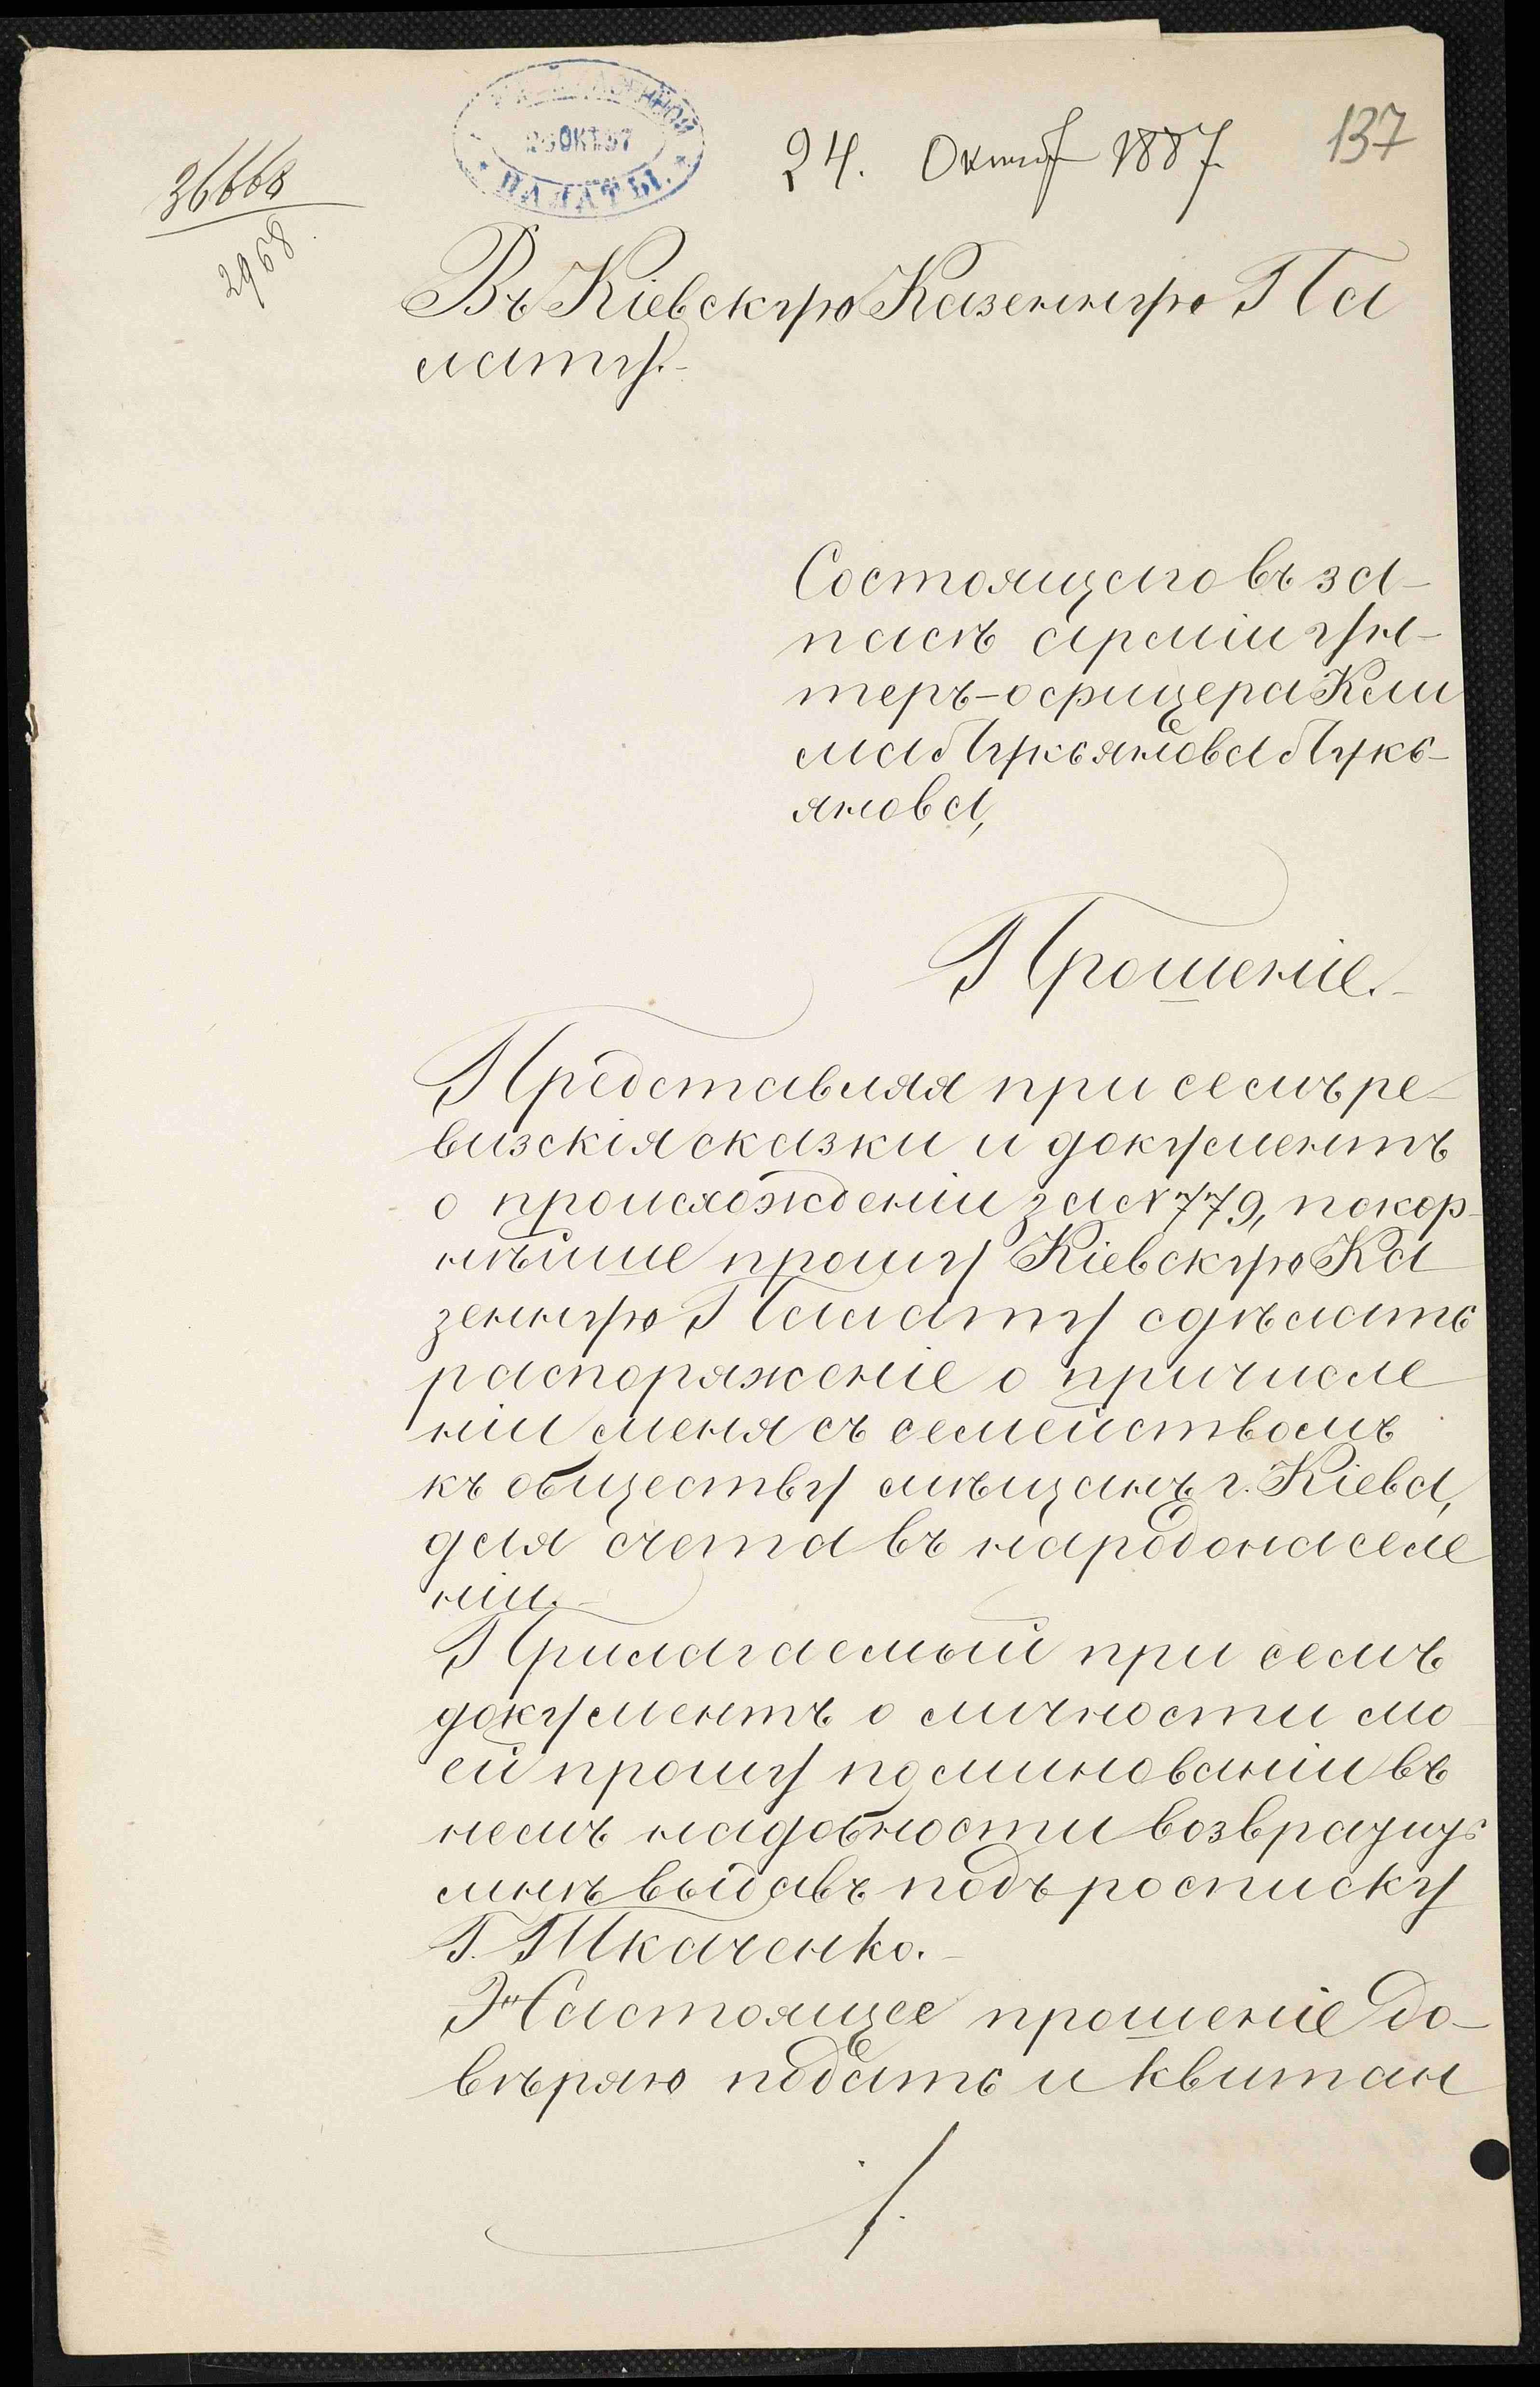 137
24. Октяб 1887
26 ОКТ. 87
ПАЛАТЫ.
36668
2968
Въ Кіевскую Казенную Па
лату.-
Состоящаго въ за-
пасѣ арміи ун-
теръ-офицера Кли
ма Лукьянова Лукь-
янова,
Прошеніе.-
Представляя при семъ ре-
визскія сказки и документъ
о происхожденіи за № 779, покор-
нѣйше прошу Кіевскую Ка
зенную Палату сдѣлать
распоряженіе о причисле
ніи меня съ семействомъ
къ обществу мѣщанъ г. Кіева,
для счета въ народонаселе
ніи.-
Прилагаемый при семъ
документъ о личности мо
ей прошу по минованіи въ
немъ надобности возвратить
мнѣ выдавъ подъ росписку
Г. Ткаченко.-
Настоящее прошеніе до-
вѣряю подать и квитан